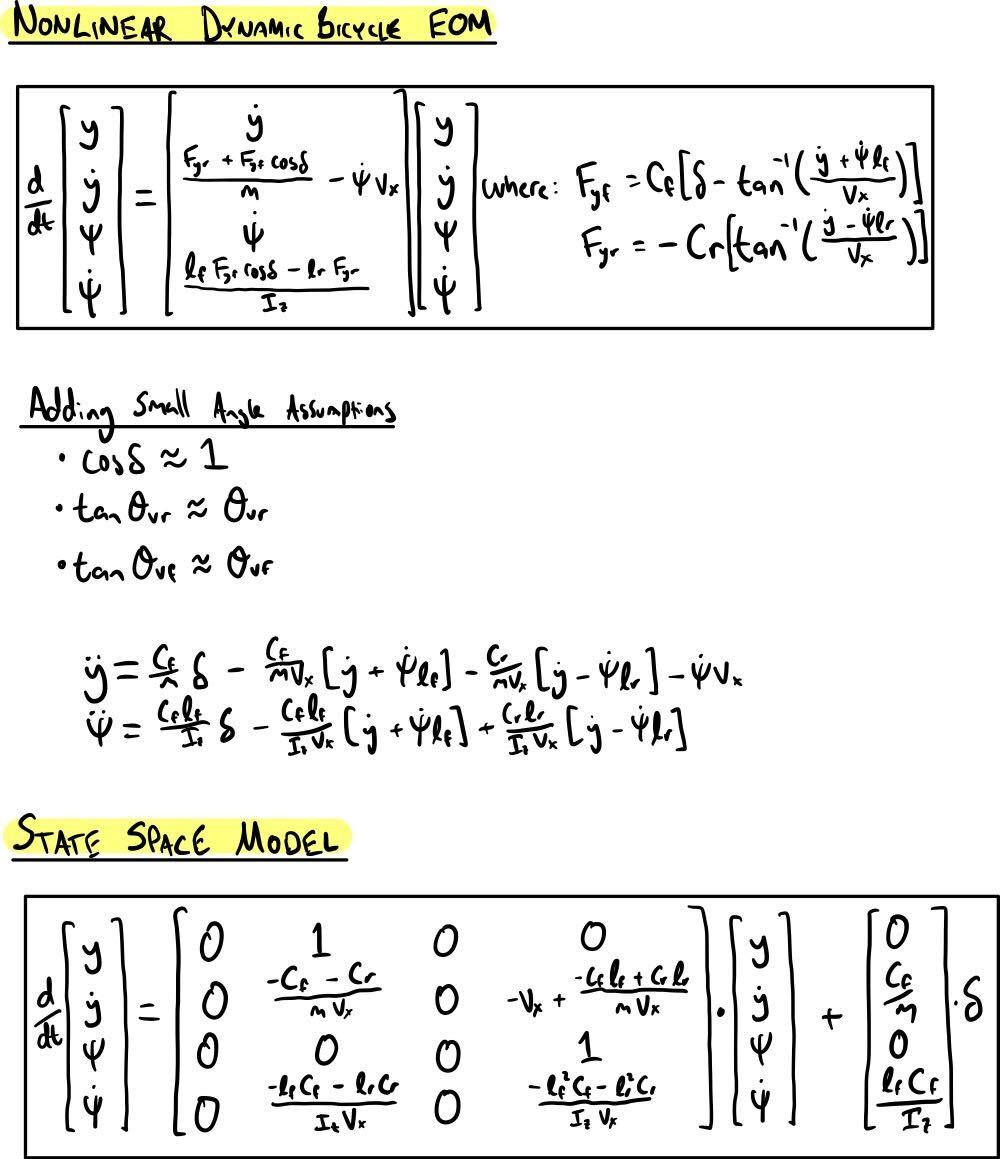 NONLINEAR DYNAMIC BICYCLE EOM
d/dt [y; ẏ; ψ; ψ̇] = [ẏ; (F_yr + F_yf cosδ)/m - ψ̇ V_x; ψ̇; (l_f F_yf cosδ - l_r F_yr)/I_z] [y; ẏ; ψ; ψ̇] where: F_yf = C_f[δ - tan⁻¹((ẏ + ψ̇ l_f)/V_x)]
F_yr = - C_r[tan⁻¹((ẏ - ψ̇ l_r)/V_x)]
Adding Small Angle Assumptions
• cosδ ≈ 1
• tan θ_vr ≈ θ_vr
• tan θ_vf ≈ θ_vf
ÿ = C_f/m δ - C_f/(mV_x) [ẏ + ψ̇ l_f] - C_r/(mV_x) [ẏ - ψ̇ l_r] - ψ̇ V_x
ψ̈ = C_f l_f/I_z δ - C_f l_f/(I_z V_x) [ẏ + ψ̇ l_f] + C_r l_r/(I_z V_x) [ẏ - ψ̇ l_r]
STATE SPACE MODEL
d/dt [y; ẏ; ψ; ψ̇] = [0, 1, 0, 0; 0, (-C_f - C_r)/(m V_x), 0, -V_x + (-C_f l_f + C_r l_r)/(m V_x); 0, 0, 0, 1; 0, (-l_f C_f - l_r C_r)/(I_z V_x), 0, (-l_f² C_f - l_r² C_r)/(I_z V_x)] · [y; ẏ; ψ; ψ̇] + [0; C_f/m; 0; l_f C_f/I_z] · δ